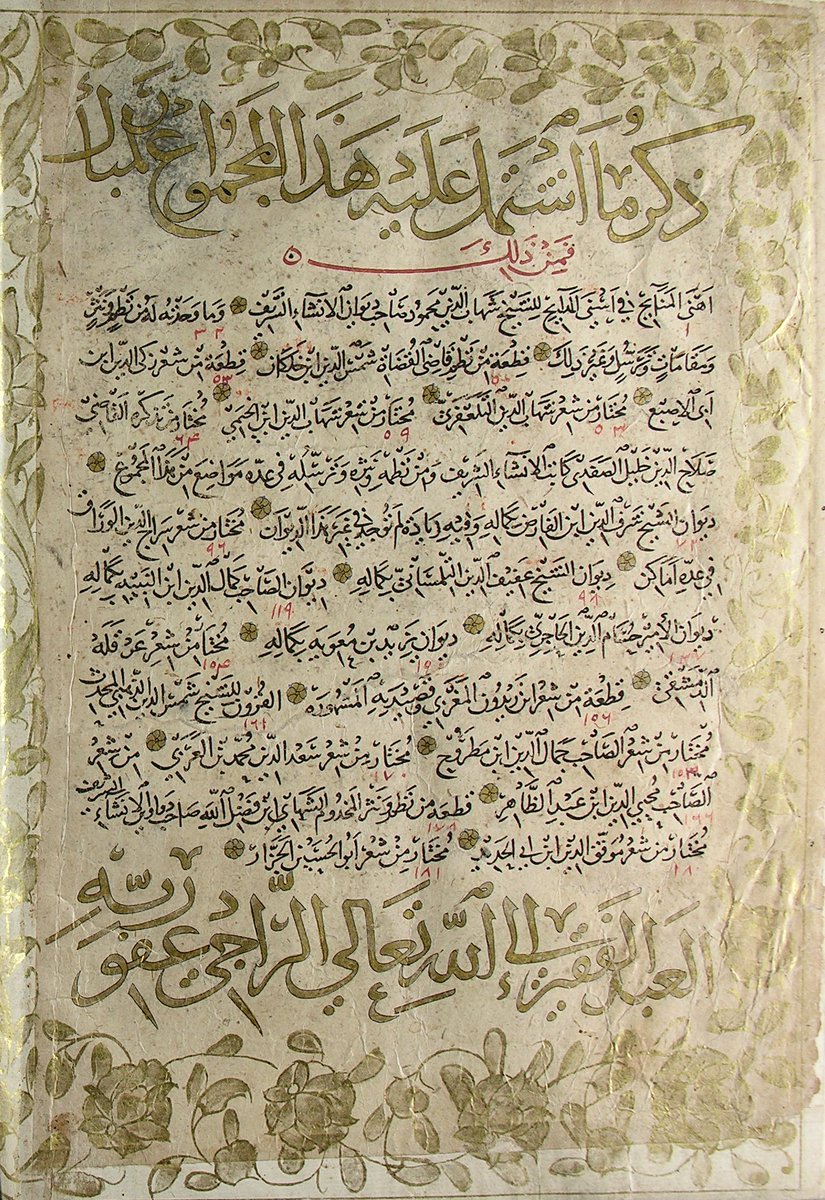 ذكر ما اشتمل عليه هذا المجموع المبارك
فمن ذلك
اهنى المنايح في اسنى المدايح للشيخ شهاب الدين محمود صاحب ديوان الانشاء الشريف وما وجدته له من نظم ونثر
١ ٣٢
ومقامات وترسل وغير ذلك قطعة من نظم قاضي القضاة شمس الدين ابن خلكان قطعة من شعر زكي الدين ابن
ابي الاصبع مختار من شعر شهاب الدين التلعفري مختار من شعر شهاب الدين ابن الخيمي مختار من تذكرة القاضي
٥٩ ٦٤
صلاح الدين خليل الصفدي كاتب الانشاء الشريف ومن نظمه ونثره وترسله في عدة مواضع من هذا المجموع
ديوان الشيخ شرف الدين ابن الفارض بكماله وفيه زيادة لم توجد في غير هذا الديوان مختار من شعر سراج الدين الوراق
٧٢ ٩٦
في عدة اماكن ديوان الشيخ عفيف الدين التلمساني بكماله ديوان الصاحب كمال الدين ابن النبيه بكماله
٩٨ ١١٩
ديوان الأمير حسام الدين الحاجري بكماله ديوان يزيد بن معوية بكماله مختار من شعر عرقلة
١٥٤
الدمشقي قطعة من شعر ابن زيدون المغربي وقصيدته المشهورة للشيخ شمس الدين
١٥٦ ١٦١
مختار من شعر الصاحب جمال الدين ابن مطروح مختار من شعر سعد الدين محمد بن العربي من شعر
١٧٠
الصاحب محيي الدين ابن عبد الظاهر قطعة من نظم ونثر المخدوم الشهابي ابن فضل الله صاحب دواوين الانشاء الشريف
١٧٨
مختار من شعر موفق الدين ابن ابي الحديد مختار من شعر أبو الحسين الجزار
١٨ ١٨١
العبد الفقير الى الله تعالي الراجي عفو ربه